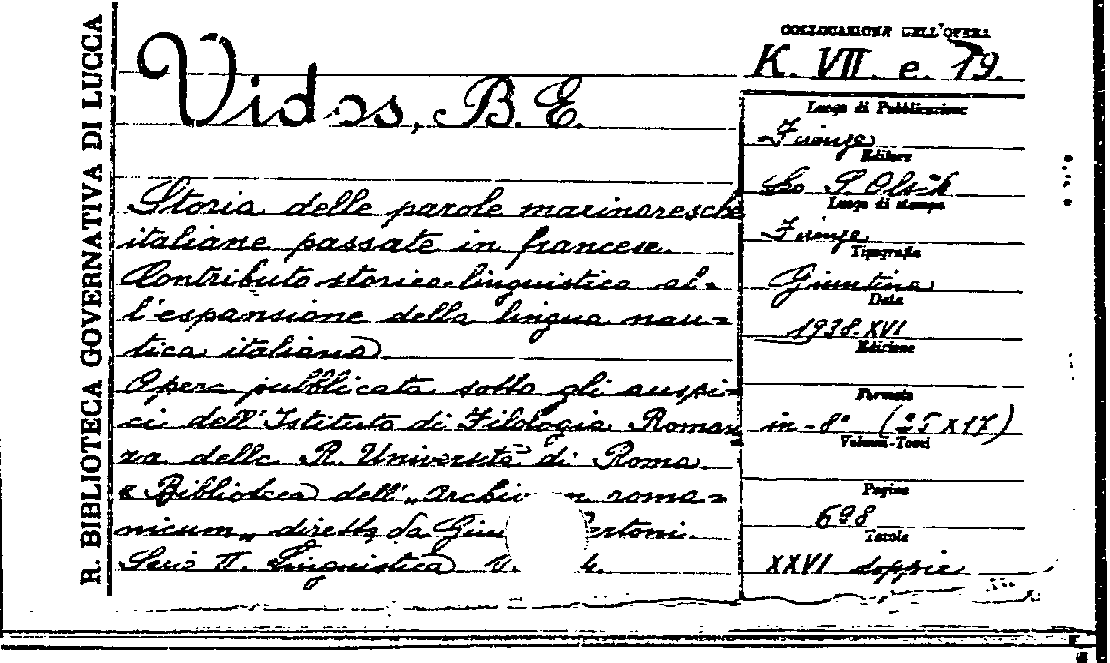 R. BIBLIOTECA GOVERNATIVA DI LUCCA
Vidos, B. E.
Storia delle parole marinaresche
italiane passate in francese.
Contributo storico-linguistico al-
l'espansione della lingua nau-
tica italiana
Opera pubblicata sotto gli auspi-
ci dell'Istituto di Filologia Roman
za della R. Università di Roma
"Biblioteca dell'„Archiv m roma-
nicum„ diretta da Giu ertoni.
Serie II. Linguistica V. 4.
COLLOCAZIONE DELL'OPERA
K. VII. e. 19.
Luogo di Pubblicazione
Firenze
Editore
Leo S. Olschki
Luogo di stampa
Firenze
Tipografia
Giuntina
Data
1938-XVI
Edizione
Formato
in-8° (25x17)
Volumi-Tomi
Pagine
698
Tavole
XXVI doppie